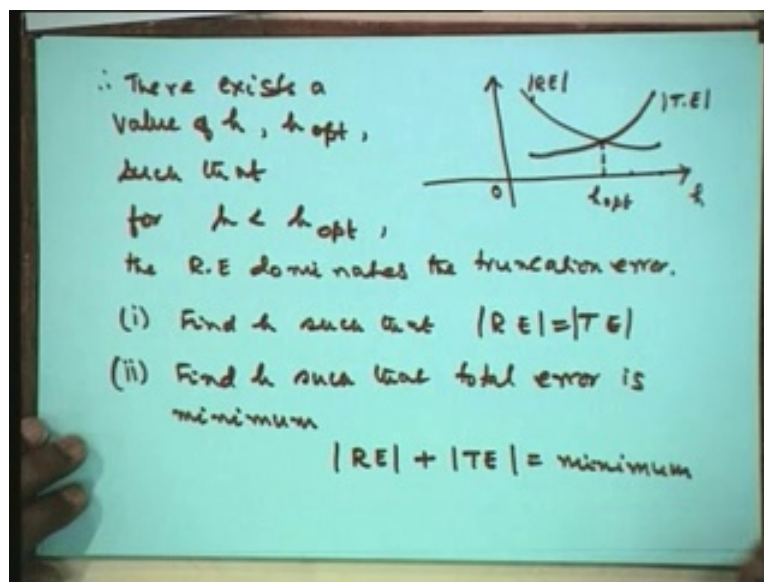 ∴ There exists a
value of h, h opt,
such that
for h < h opt,
the R.E dominates the truncation error.
(i) Find h such that |RE|=|TE|
(ii) Find h such that total error is
minimum
|RE| + |TE| = minimum
|RE|
|T.E|
0
h opt
h